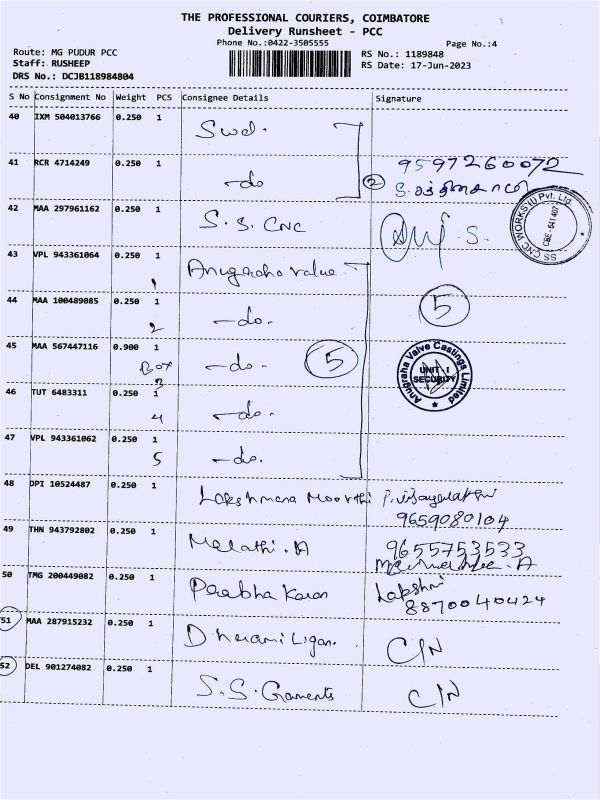 THE PROFESSIONAL COURIERS, COIMBATORE
Delivery Runsheet - PCC
Phone No.:0422-3505555
Page No.:4
Route: MG PUDUR PCC
Staff: RUSHEEP
DRS No.: DCJB118984804
RS No.: 1189848
RS Date: 17-Jun-2023
S No Consignment No Weight PCS Consignee Details Signature
40 IXM 504013766 0.250 1 Swd.
41 RCR 4714249 0.250 1 -do 2 9597260072
42 MAA 297961162 0.250 1 S. S. CNC
SS CNC WORKS (I) Pvt. Ltd. CBE-641 407
43 VPL 943361064 0.250 1 Anugraha Value
1
44 MAA 100489085 0.250 1 -do. 5
2
45 MAA 567447116 0.900 1 -do. 5
Box
3
Anugraha Valve Castings Limited UNIT - I SECURITY
46 TUT 6483311 0.250 1 -do.
4
47 VPL 943361062 0.250 1 -do.
5
48 DPI 10524487 0.250 1 Lakshmana Moorthi
9659080104
49 THN 943792802 0.250 1 Malathi. A 9655753533
50 TMG 200449082 0.250 1 Prabha Karan Lakshmi
8870040424
51 MAA 287915232 0.250 1 C/N
52 DEL 901274082 0.250 1 S. S. Graments C/N